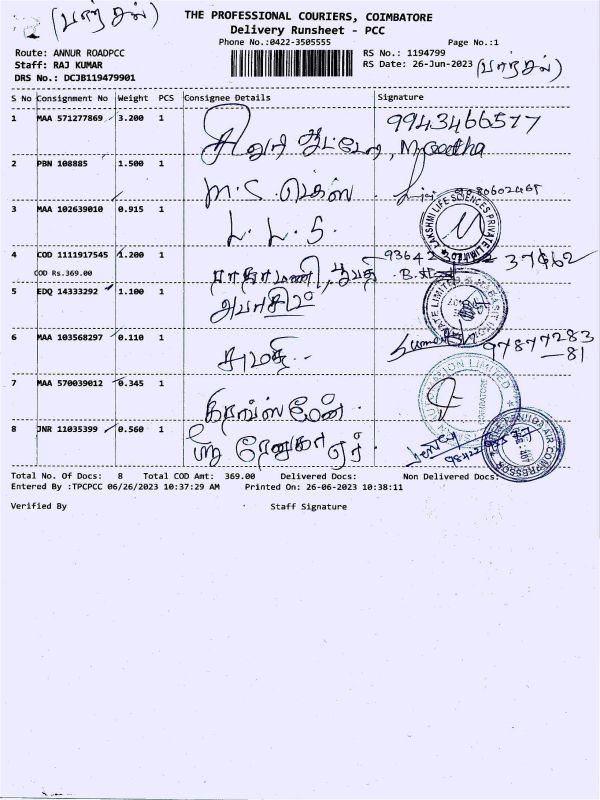 (பார்சல்)
THE PROFESSIONAL COURIERS, COIMBATORE
Delivery Runsheet - PCC
Phone No.:0422-3505555 Page No.:1
Route: ANNUR ROADPCC RS No.: 1194799
Staff: RAJ KUMAR RS Date: 26-Jun-2023 (பார்சல்)
DRS No.: DCJB119479901
S No Consignment No Weight PCS Consignee Details Signature
1 MAA 571277869 3.200 1 9943466577
2 PBN 108885 1.500 1 M.C.
3 MAA 102639010 0.915 1 L.L.S. LAKSHMI LIFE SCIENCES PRIVATE LIMITED
4 COD 1111917545 1.200 1 ராதாமணி 93642 37962
COD Rs.369.00
5 EDQ 14333292 1.100 1
6 MAA 103568297 0.110 1 சுமதி 97877283
81
7 MAA 570039012 0.345 1 LIMITED
8 JNR 11035399 0.560 1 ஸ்ரீ ரேணுகா ஏர் AIR COMPRESSOR
Total No. Of Docs: 8 Total COD Amt: 369.00 Delivered Docs: Non Delivered Docs:
Entered By :TPCPCC 06/26/2023 10:37:29 AM Printed On: 26-06-2023 10:38:11
Verified By Staff Signature